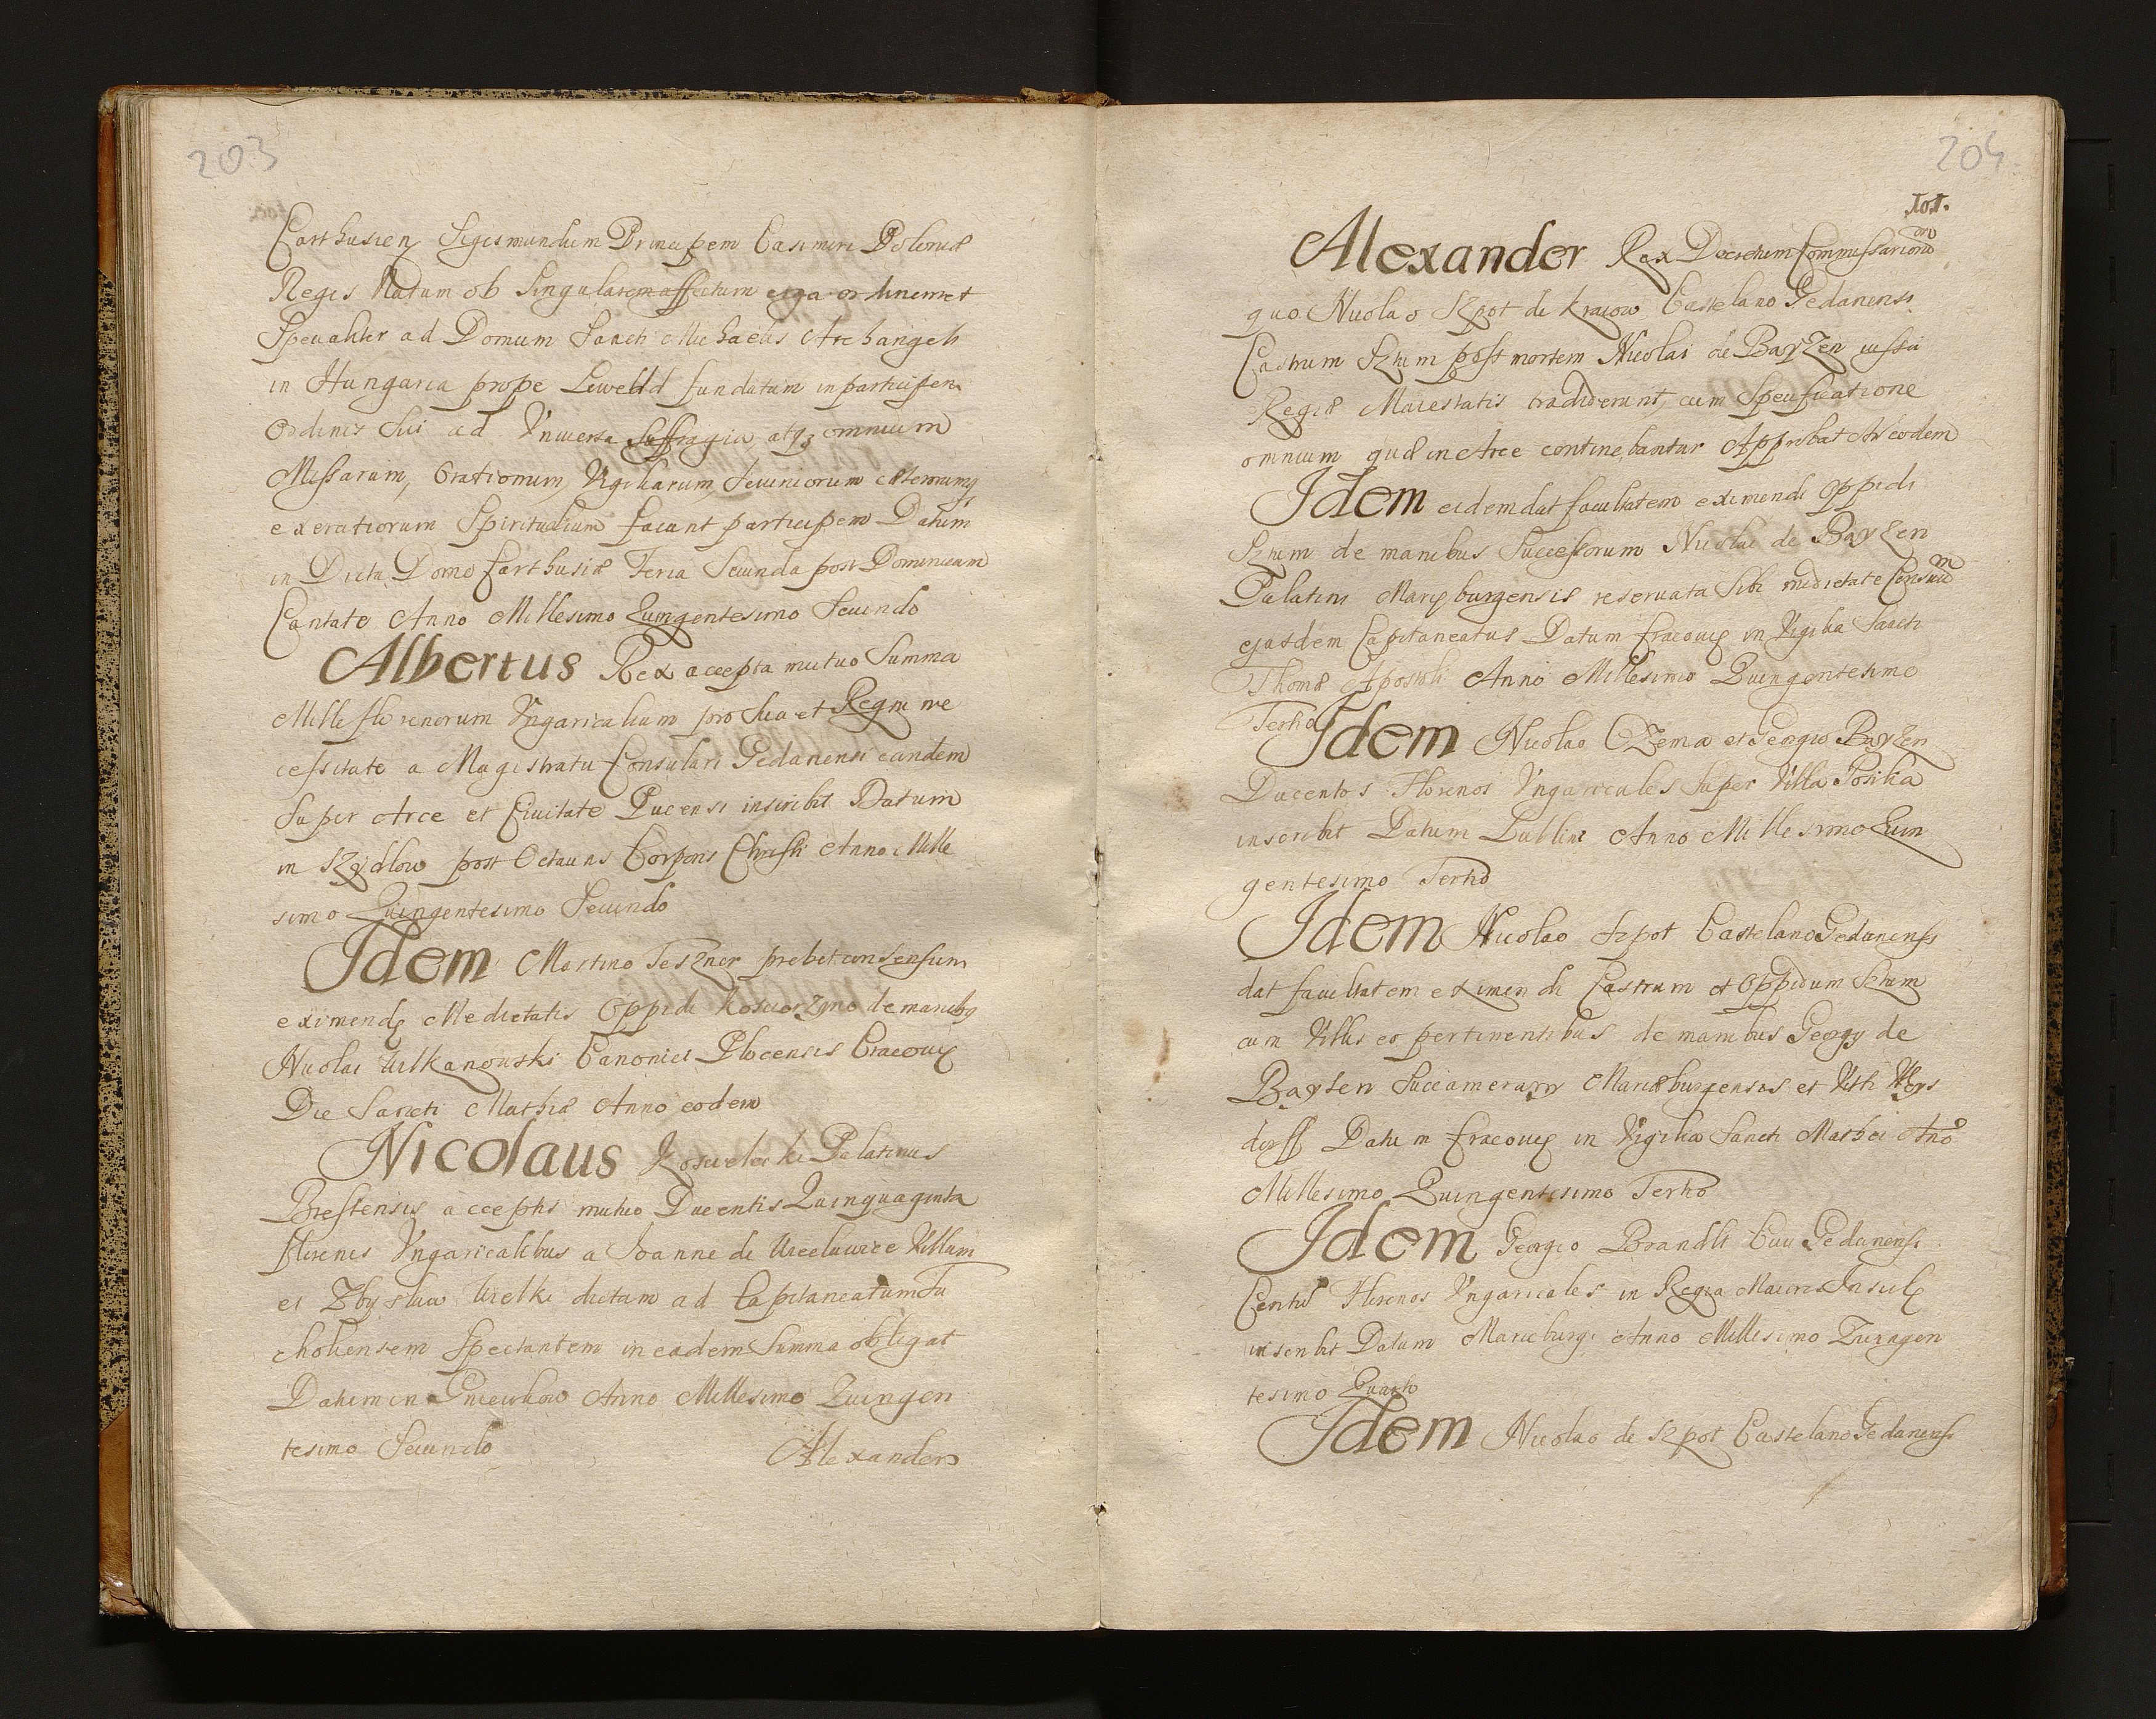 203
Carthusien Sigismundum Principem Casimiri Poloniæ
Regis Natum ob Singularem affectum erga ordinem et
Specialiter ad Domum Sancti Michaelis Archangeli
in Hungaria prope Lewelld fundatum in participem
Ordinis Sui ad Vniuersa Suffragia atq3 omnium
Missarum, Orationum, Vigiliarum, Ieiuniorum cæterorumq
exeratiorum Spiritualium faciunt participem Datum
in Dicta Domo Carthusiæ Feria Secunda post Dominicam
Cantate Anno Millesimo Quingentesimo Secundo
Albertus Rex accepta mutuo Summa
Mille florenorum Vngaricalium pro Sua et Regni ne
cessitate a Magistratu Consulari Gedanensi eandem
Super Arce et Ciuitate Pucensi inscribit Datum
in Szydlow post Octauas Corporis Christi Anno Mille
simo Quingentesimo Secundo
Idem Martino Teszner prebet consensum
eximendę Medietatis Oppidi Kosuoszyno de manibq
Nicolai Wilkanowski Canonici Plocensis Cracouię
Die Sancti Mathiæ Anno eodem
Nicolaus Koscieleski Palatinus
Brestensis acceptis mutuo Ducentis Quinquaginta
florenis Vngaricalibus a Joanne de Wrcelawice Villam
et Zbyslaw Wielki dictam ad Capitaneatum Tu
choliensem Spectantem in eadem Summa obligat
Datum in Gniewkow Anno Millesimo Quingen
tesimo Secundo
Alexander
204
101.
Alexander Rex Decretum Commissariorum
quo Nicolao Szpot de Kraiow Castelano Gedanensi
Castrum Sztum post mortem Nicolai de Bayzen iussu
Regiæ Maiestatis tradiderunt, cum Specificatione
omnium quæ in Arce continebantur Approbat Ao eodem
Idem eidem dat facultatem eximendi Oppidi
Sztum de manibus Successorum Nicolai de Bayzen
Palatini Maryburgensis reseruata Sibi medietate Censuum
ejusdem Capitaneatus Datum Cracouię in Vigilia Sancti
Thomæ Apostoli Anno Millesimo Quingentesimo
Tertio
Idem Nicolao Czema et Georgio Bayzen
Ducentos Florenos Vngaricales Super Villa Posilia
inscribit Datum Lublini Anno Millesimo Quin
gentesimo Tertio
Idem Nicolao Szpot Castelano Gedanensi
dat facultatem eximendi Castrum et Oppidum Sztum
cum Villis eo pertinentibus de manibus Georgy de
Bayzen Succamerarij Mariæburgensis et Viti Weys
dorff Datum Cracouię in Vigilia Sancti Mathei Anõ
Millesimo Quingentesimo Tertio
Idem Georgio Brandli Ciui Gedanensi
Centum Florenos Vngaricales in Regia Maioris Insulę
inscribit Datum Mariæburgi Anno Millesimo Quingen
tesimo Quarto
Idem Nicolao de Szpot Castelano Gedanensi